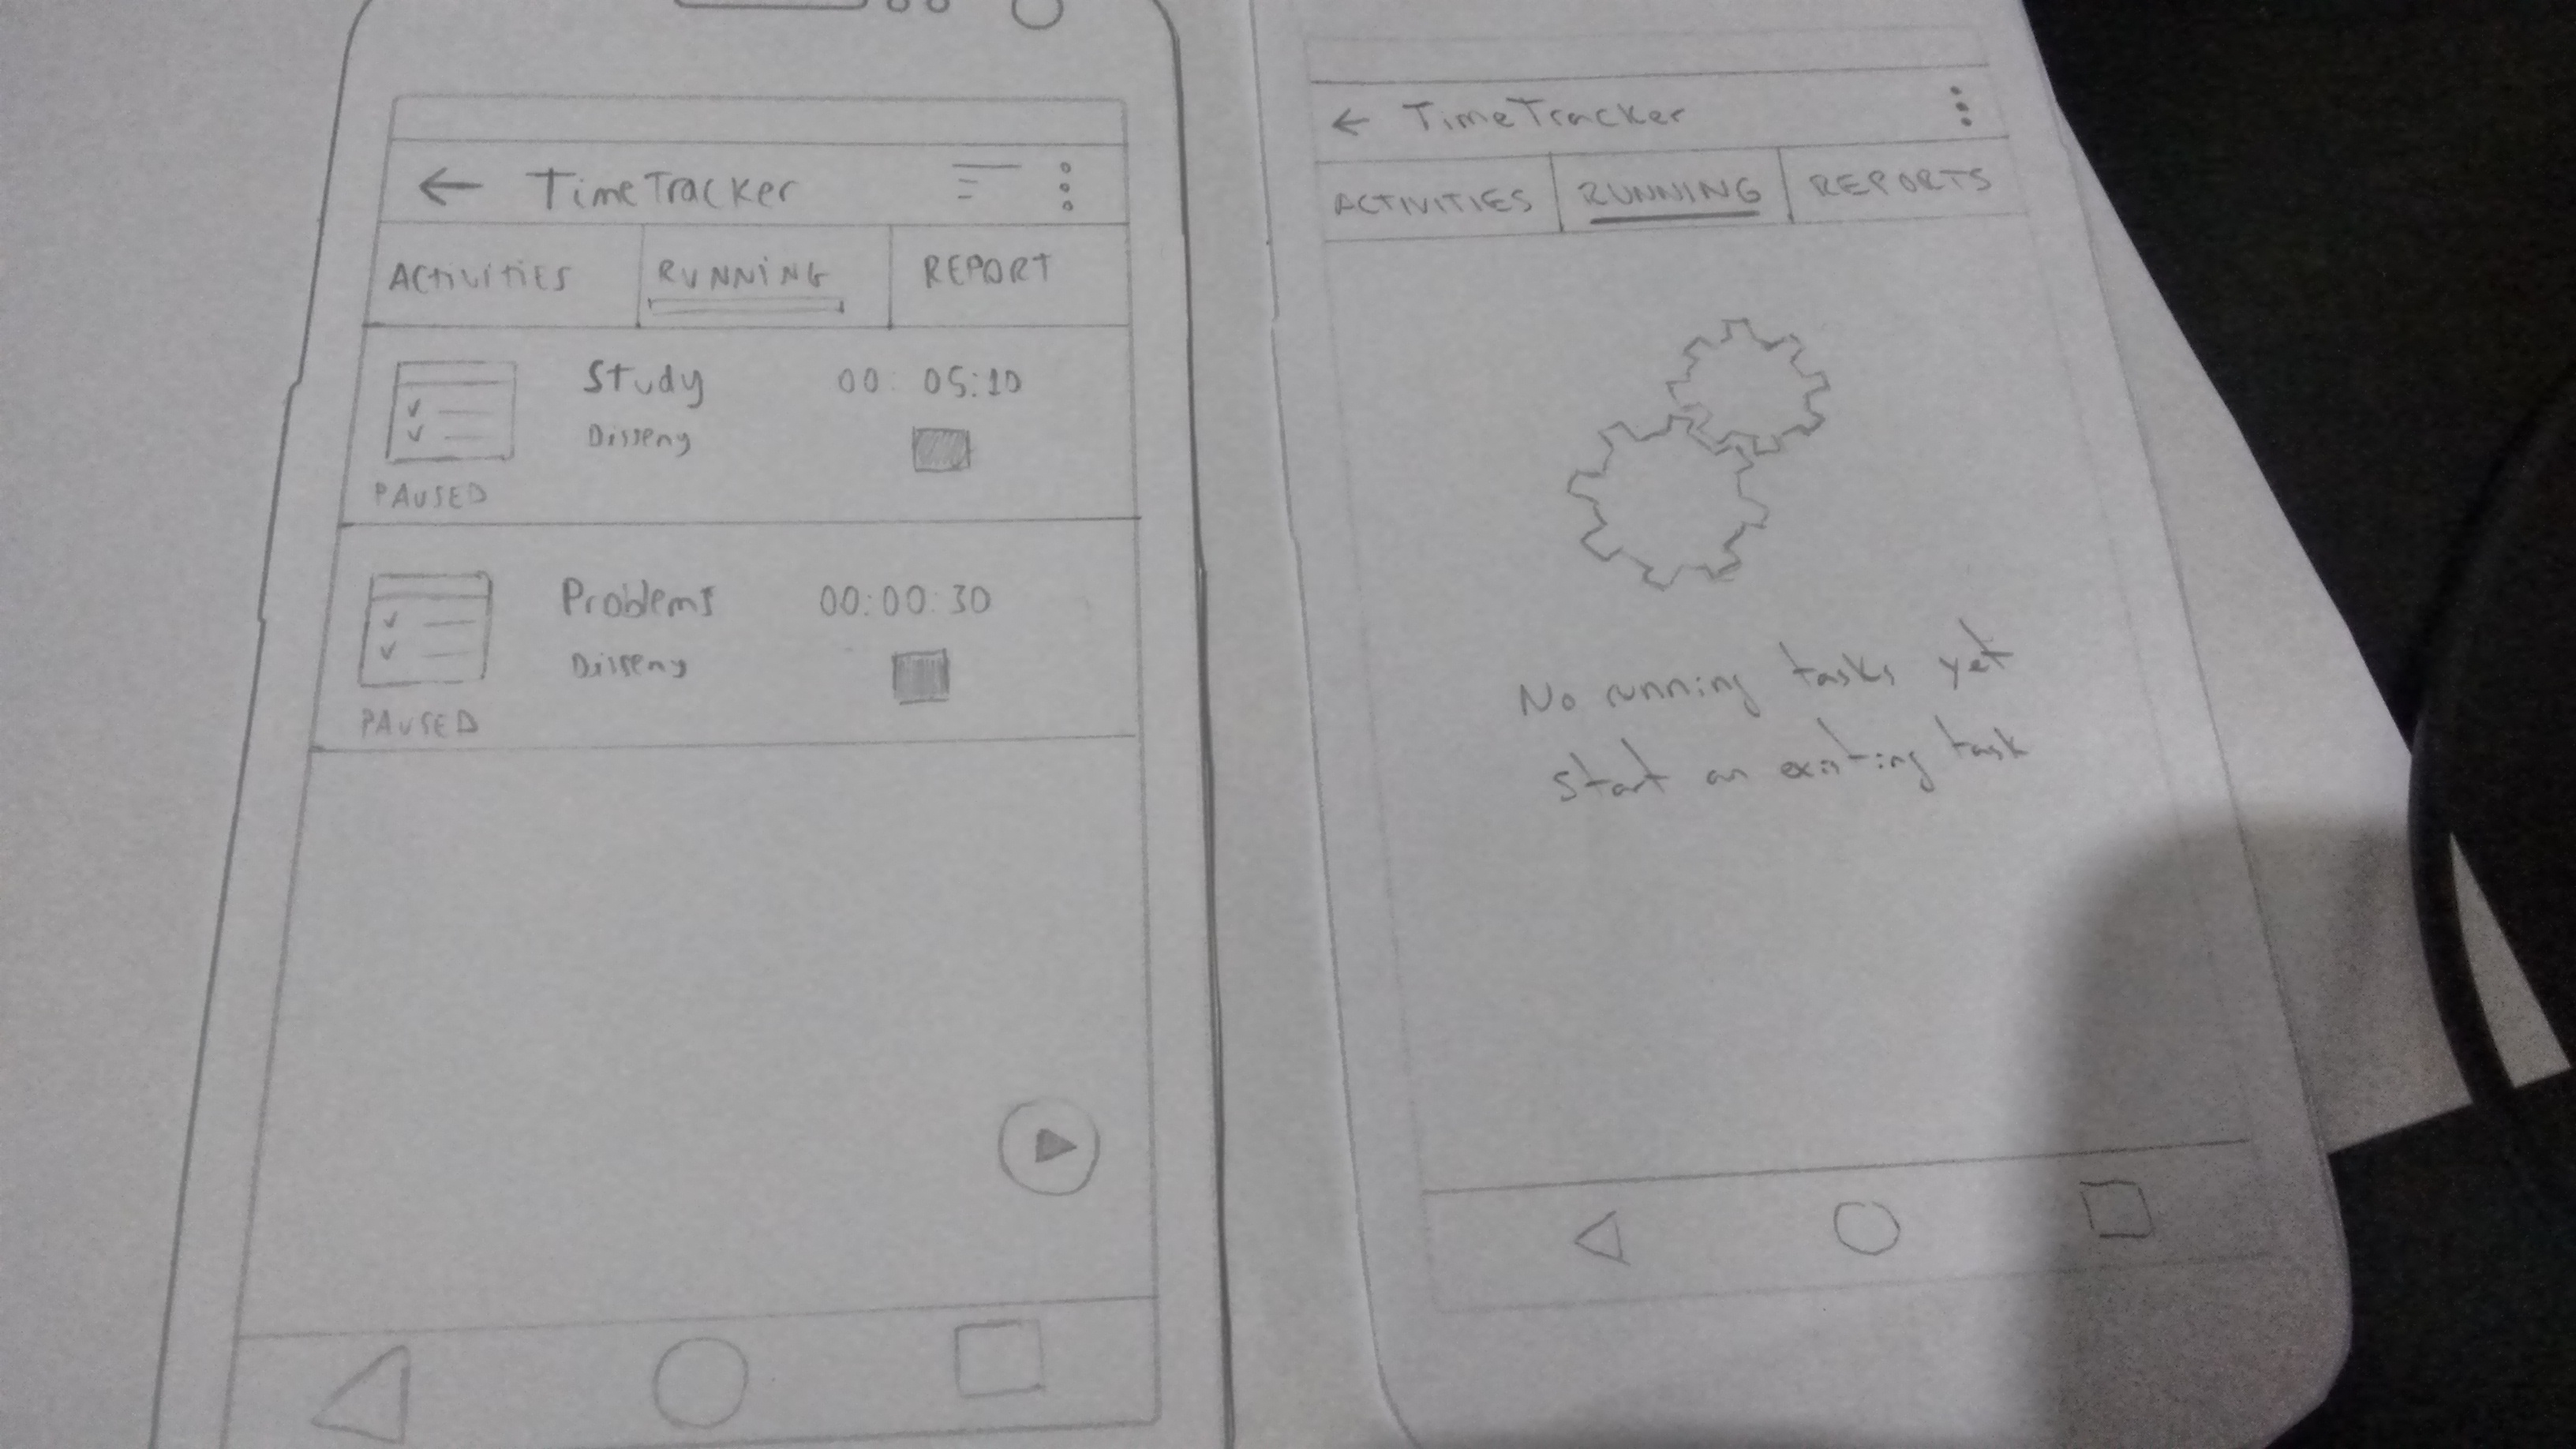 TimeTracker
ACTIVITIES RUNNING REPORT
Study 00:05:10
Disseny
PAUSED
Problems 00:00:30
Disseny
PAUSED
TimeTracker
ACTIVITIES RUNNING REPORTS
No running tasks yet
start an existing task